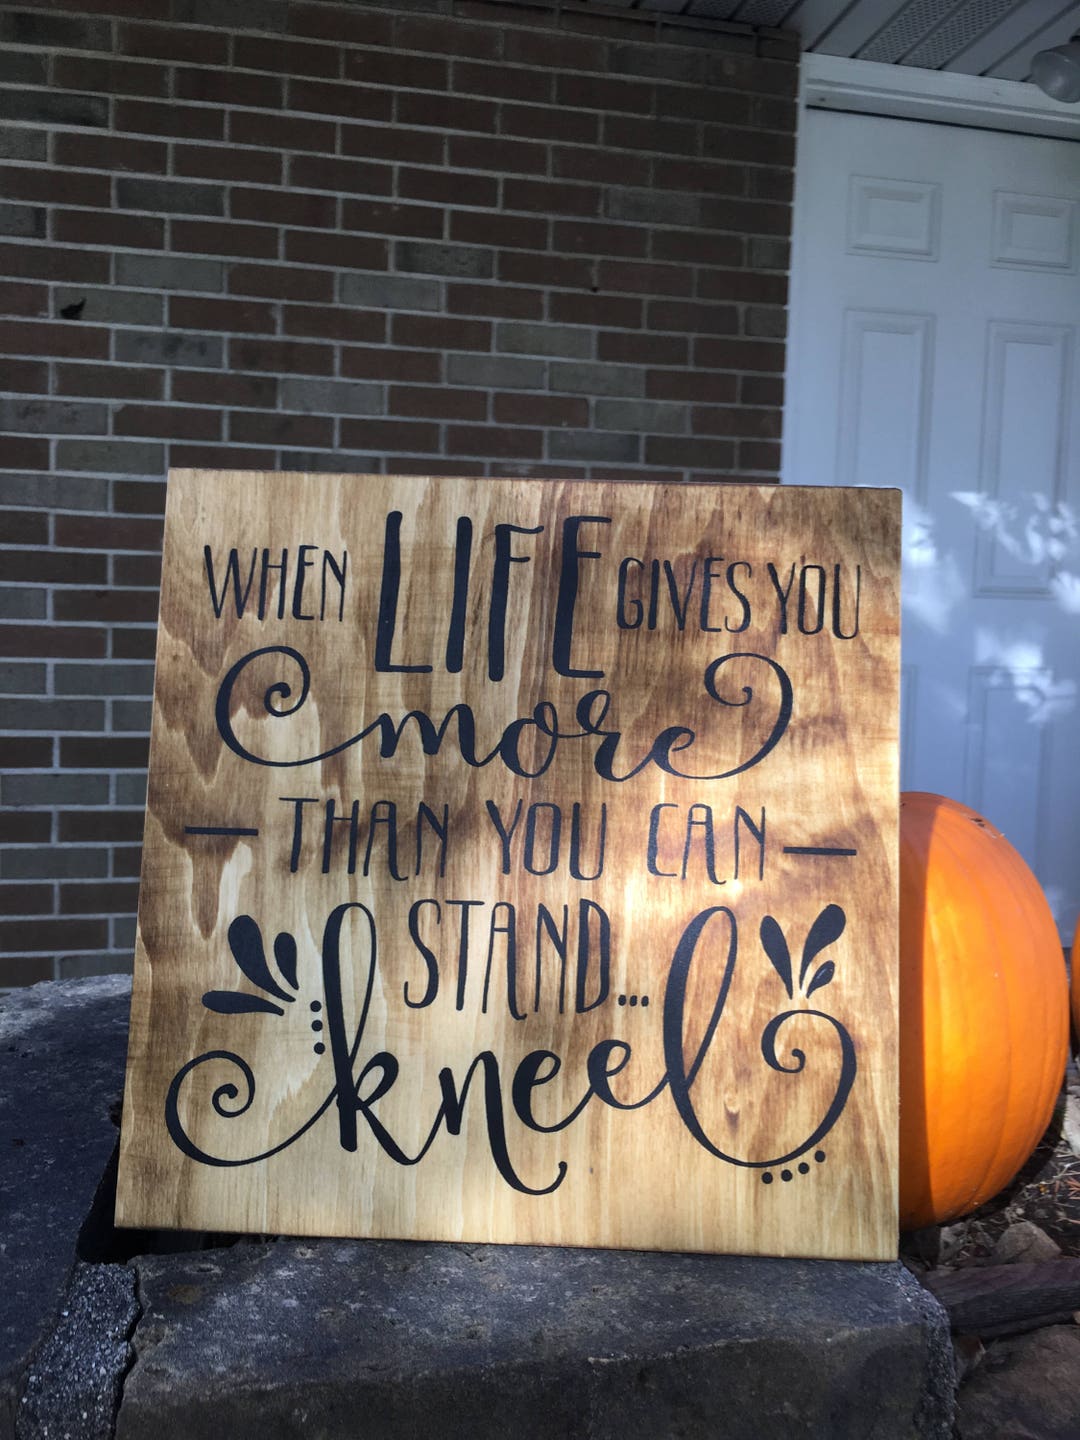 WHEN LIFE GIVES YOU
more
THAN YOU CAN
STAND...
kneel